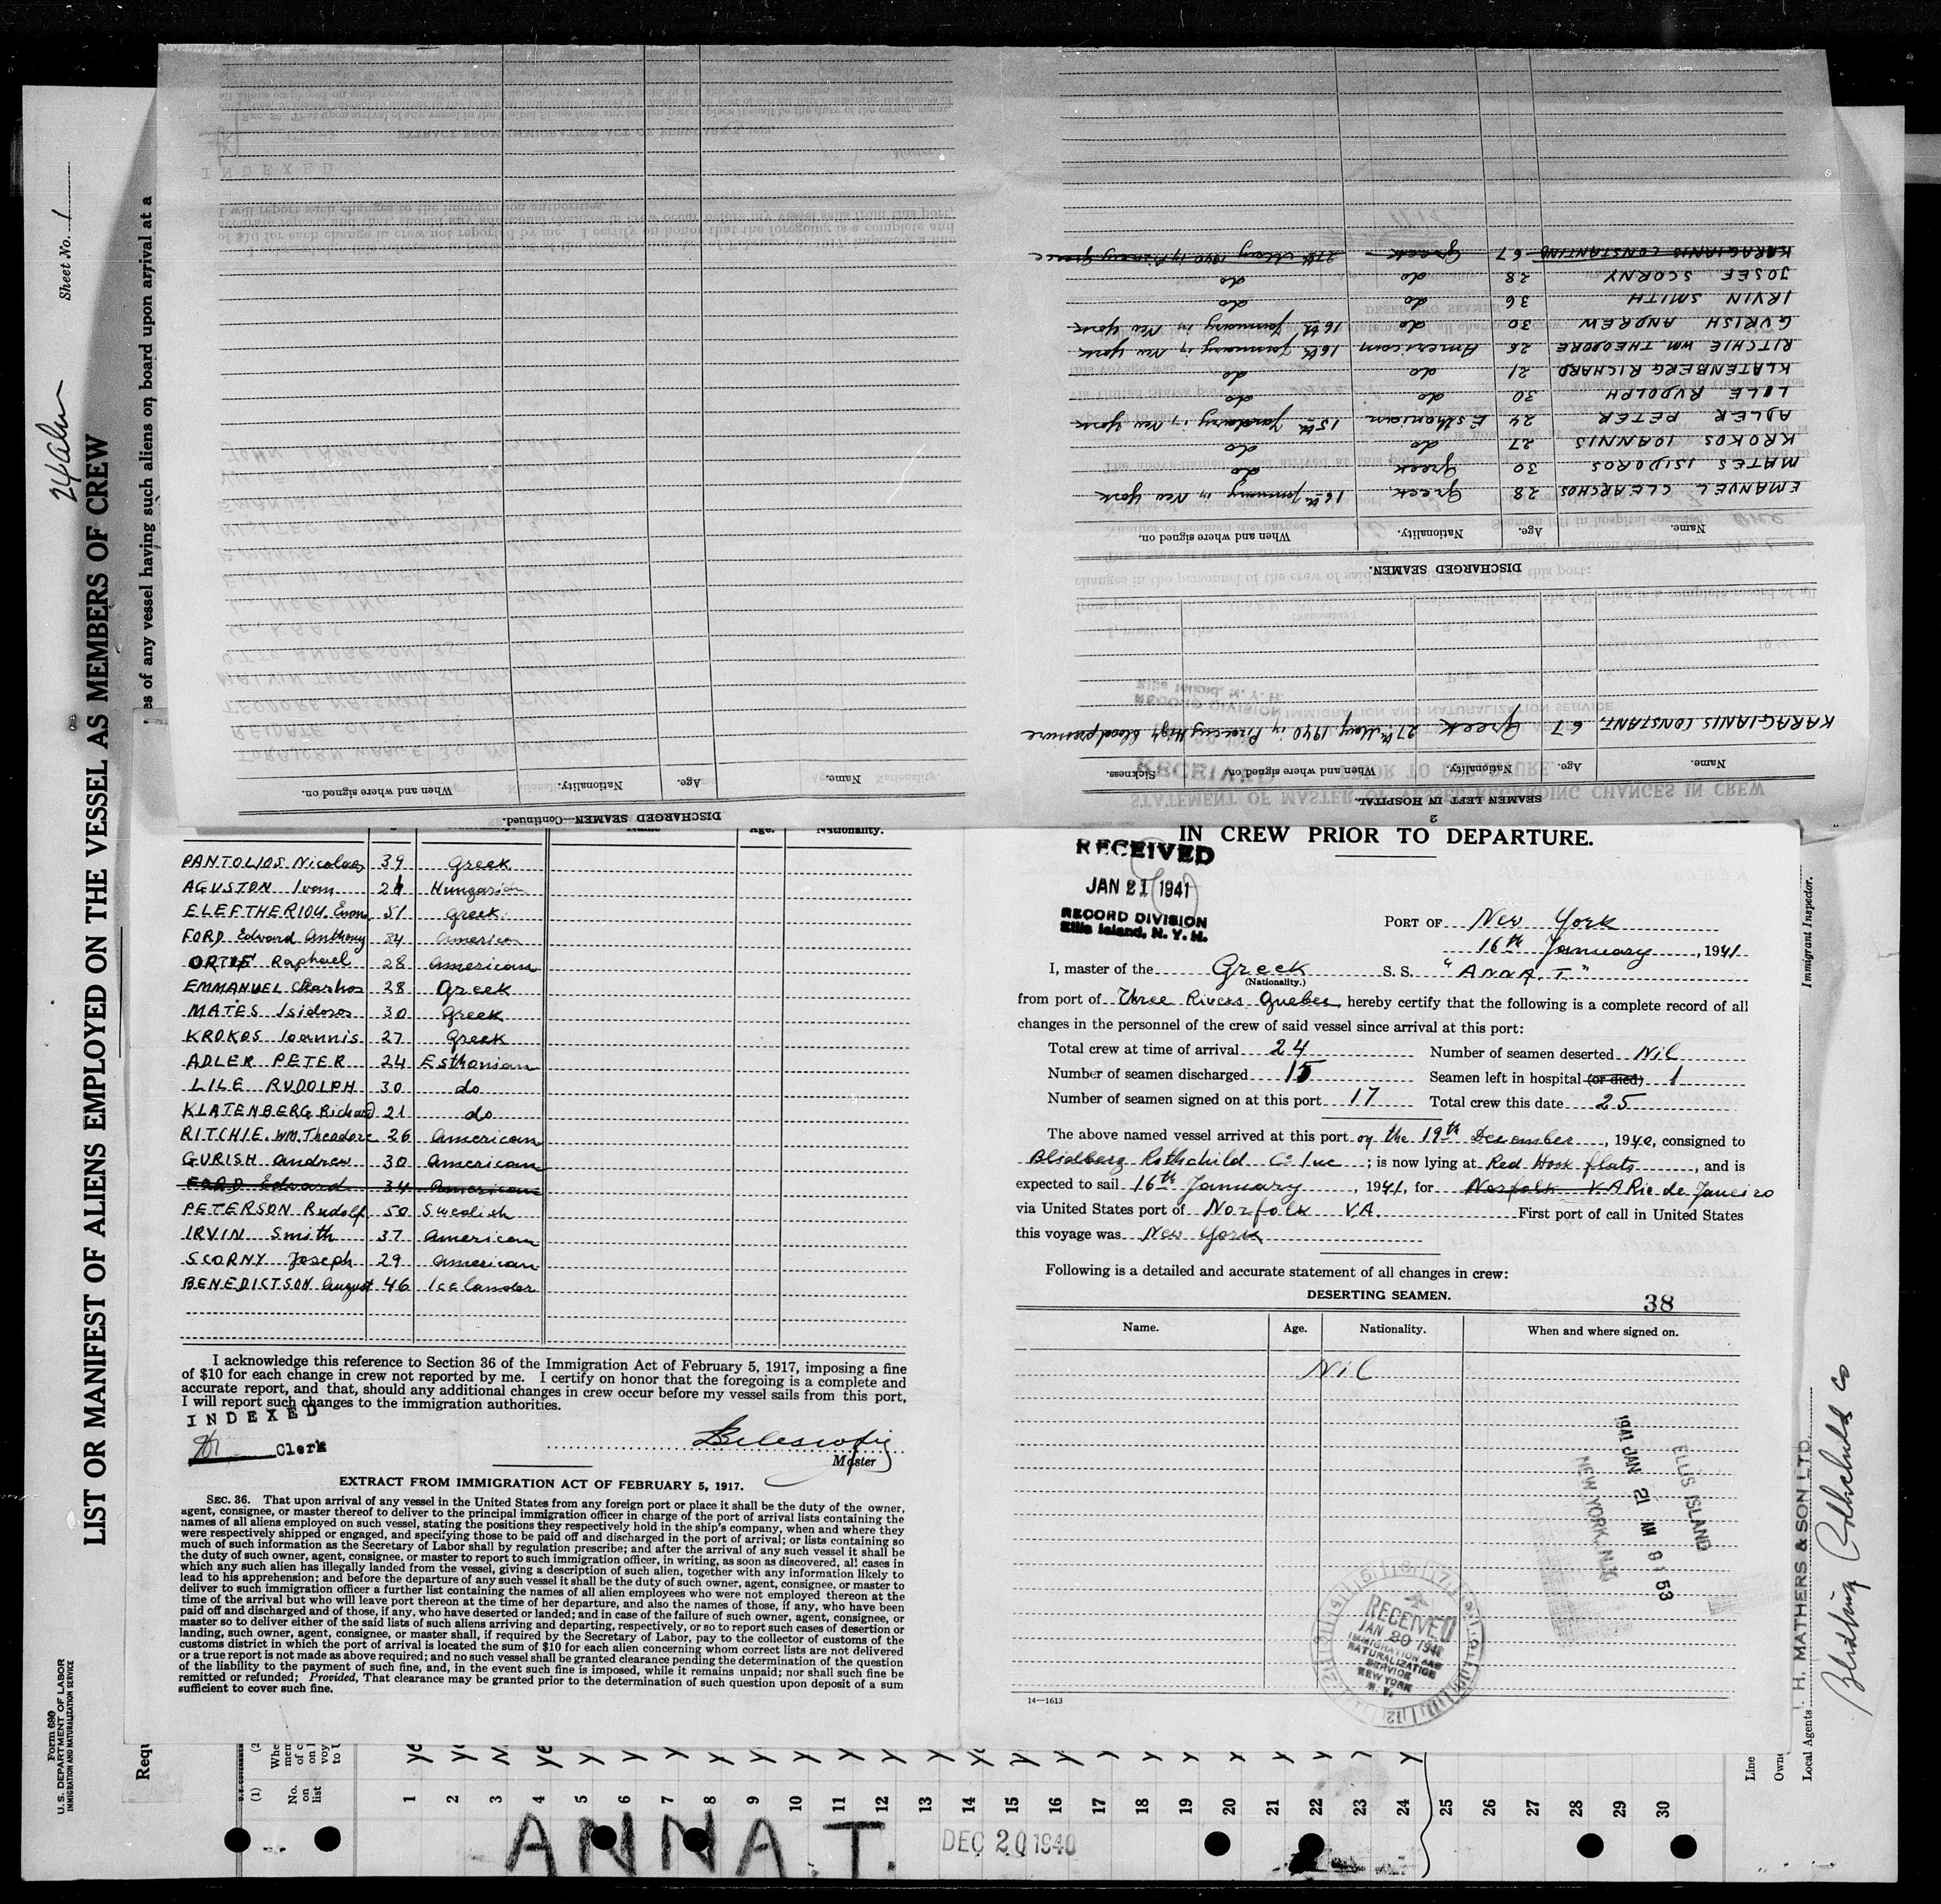 LIST OR MANIFEST OF ALIENS EMPLOYED ON THE VESSEL AS MEMBERS OF CREW
Sheet No. 1
es of any vessel having such aliens on board upon arrival at a
Form 680
U.S. DEPARTMENT OF LABOR
IMMIGRATION AND NATURALIZATION SERVICE
DISCHARGED SEAMEN—Continued.
Name. Age. Nationality. When and where signed on.
2
SEAMEN LEFT IN HOSPITAL.
Name. Age. Nationality. When and where signed on. Sickness.
KARAGIANIS CONSTANT. 67 Greek 27th May 1940 in Piraeus High Blood pressure
DISCHARGED SEAMEN.
Name. Age. Nationality. When and where signed on.
EMANUEL CLEARCHOS 28 Greek. 16th January in New York
MATES ISIDOROS 30 Greek do
KROKOS IOANNIS 27 do do
ADLER PETER 24 Esthonian 15th January in New York
LILE RUDOLPH 30 do do
KLATENBERG RICHARD 21 do do
RITCHIE WM. THEODORE 26 American 16th January in New York
GURISH ANDREW 30 do 16th January in New York
IRVIN SMITH 36 do do
JOSEF SCORNY 28 do do
KARAGIANIS CONSTANTINO 67 Greek 27th May 1940 in Piraeus Greece
PANTOLIOS Nicolaos 39 Greek
AGUSTON Ivan Hungarian
ELEFTHERIOU Emm. 51 Greek.
FORD Edward Anthony 34 American
Raphael 28 American
EMMANUEL Clearhos 28 Greek
MATES Isidoros 30 Greek
KROKOS Ioannis 27 Greek
ADLER PETER 24 Esthonian
LILE RUDOLPH 30 do
KLATENBERG Richard 21 do
RITCHIE WM. Theodore 26 American
GURISH Andrew 30 American
FORD Edward 34 American
PETERSON Rudolf 50 Swedish
IRVIN Smith 37 American
SCORNY Joseph 29 American
BENEDICTSON August 46 Icelander
I acknowledge this reference to Section 36 of the Immigration Act of February 5, 1917, imposing a fine
of $10 for each change in crew not reported by me. I certify on honor that the foregoing is a complete and
accurate report, and that, should any additional changes in crew occur before my vessel sails from this port,
I will report such changes to the immigration authorities.
INDEXED
Clerk
Master
EXTRACT FROM IMMIGRATION ACT OF FEBRUARY 5, 1917.
SEC. 36. That upon arrival of any vessel in the United States from any foreign port or place it shall be the duty of the owner,
agent, consignee, or master thereof to deliver to the principal immigration officer in charge of the port of arrival lists containing the
names of all aliens employed on such vessel, stating the positions they respectively hold in the ship's company, when and where they
were respectively shipped or engaged, and specifying those to be paid off and discharged in the port of arrival; or lists containing so
much of such information as the Secretary of Labor shall by regulation prescribe; and after the arrival of any such vessel it shall be
the duty of such owner, agent, consignee, or master to report to such immigration officer, in writing, as soon as discovered, all cases in
which any such alien has illegally landed from the vessel, giving a description of such alien, together with any information likely to
lead to his apprehension; and before the departure of any such vessel it shall be the duty of such owner, agent, consignee, or master to
deliver to such immigration officer a further list containing the names of all alien employees who were not employed thereon at the
time of the arrival but who will leave port thereon at the time of her departure, and also the names of those, if any, who have been
paid off and discharged and of those, if any, who have deserted or landed; and in case of the failure of such owner, agent, consignee, or
master so to deliver either of the said lists of such aliens arriving and departing, respectively, or so to report such cases of desertion or
landing, such owner, agent, consignee, or master shall, if required by the Secretary of Labor, pay to the collector of customs of the
customs district in which the port of arrival is located the sum of $10 for each alien concerning whom correct lists are not delivered
or a true report is not made as above required; and no such vessel shall be granted clearance pending the determination of the question
of the liability to the payment of such fine, and, in the event such fine is imposed, while it remains unpaid; nor shall such fine be
remitted or refunded; Provided, That clearance may be granted prior to the determination of such question upon deposit of a sum
sufficient to cover such fine.
IN CREW PRIOR TO DEPARTURE.
RECEIVED
JAN 21 1941
RECORD DIVISION
Ellis Island, N. Y. H.
PORT OF New York
16th January, 1941
I, master of the Greek S. S. "ANNA. T."
(Nationality.)
from port of Three Rivers Quebec hereby certify that the following is a complete record of all
changes in the personnel of the crew of said vessel since arrival at this port:
Total crew at time of arrival 24 Number of seamen deserted Nil
Number of seamen discharged 15 Seamen left in hospital (or died) 1
Number of seamen signed on at this port 17 Total crew this date 25
The above named vessel arrived at this port on the 19th December, 1940, consigned to
Blidberg Rothchild Co Inc; is now lying at Red Hook flats, and is
expected to sail 16th January, 1941, for Norfolk VA Rio de Janeiro
via United States port of Norfolk VA. First port of call in United States
this voyage was New York
Following is a detailed and accurate statement of all changes in crew:
DESERTING SEAMEN.
38
Name. Age. Nationality. When and where signed on.
Nil
ELLIS ISLAND
1941 JAN 21 AM 9 53
NEW YORK, N.Y.
RECEIVED
JAN 20 1941
IMMIGRATION AND
NATURALIZATION
SERVICE
NEW YORK
N. Y.
14—1613
Immigrant Inspector.
H. MATHERS & SON LTD.
Local Agents
Blidberg Rothchild Co
Line
Requ
(1)
(2)
No. on list
1 2 3 4 5 6 7 8 9 10 11 12 13 14 15 16 17 18 19 20 21 22 23 24 25 26 27 28 29 30
ANNA T.
DEC 20 1940